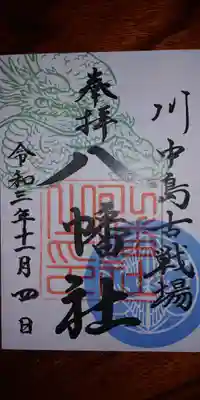 川中島古戦場
奉拝
八幡社
令和三年十一月四日